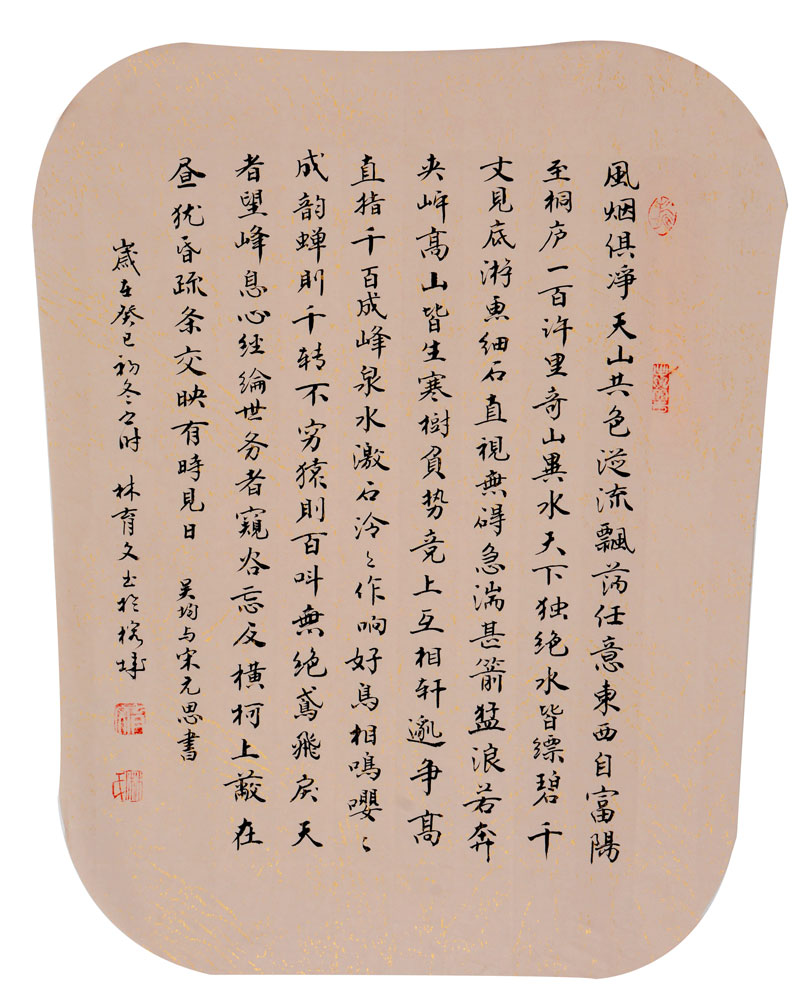 風烟俱凈天山共色従流飄荡任意東西自富陽
至桐庐一百许里奇山異水天下独绝水皆缥碧千
丈见底游鱼细石直視無碍急湍甚箭猛浪若奔
夹岸高山皆生寒樹負势竞上互相轩邈争高
直指千百成峰泉水激石泠〻作响好鸟相鳴嘤〻
成韵蝉則千转不穷猿則百叫無绝鸢飛戾天
者望峰息心经綸世务者窺谷忘反横柯上蔽在
昼犹昏疏条交映有時见日 吴均与宋元思書
嵗在癸巳初冬之时 林育文书於榕城